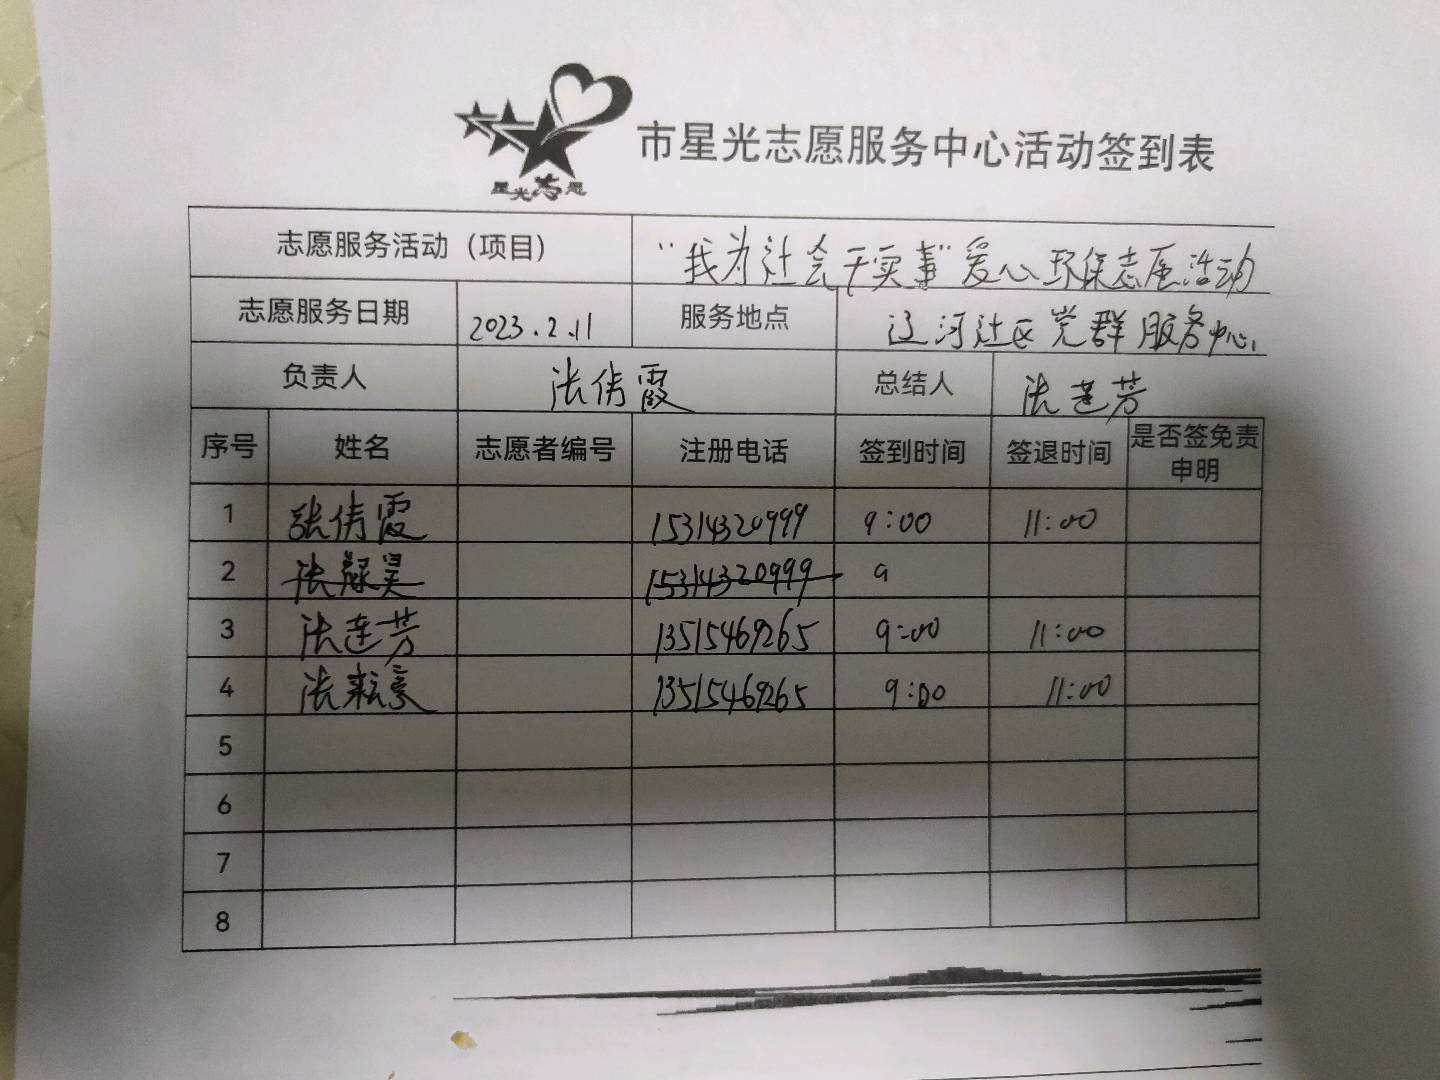 星光志愿
市星光志愿服务中心活动签到表
志愿服务活动（项目） “我为社会干实事”爱心环保志愿活动
志愿服务日期 2023.2.11 服务地点 辽河社区党群服务中心
负责人 张倩霞 总结人 张莲芳
序号 姓名 志愿者编号 注册电话 签到时间 签退时间 是否签免责申明
1 张倩霞 15314320999 9:00 11:00
2 15314320999 9
3 张莲芳 13515469265 9:00 11:00
4 13515469265 9:00 11:00
5
6
7
8